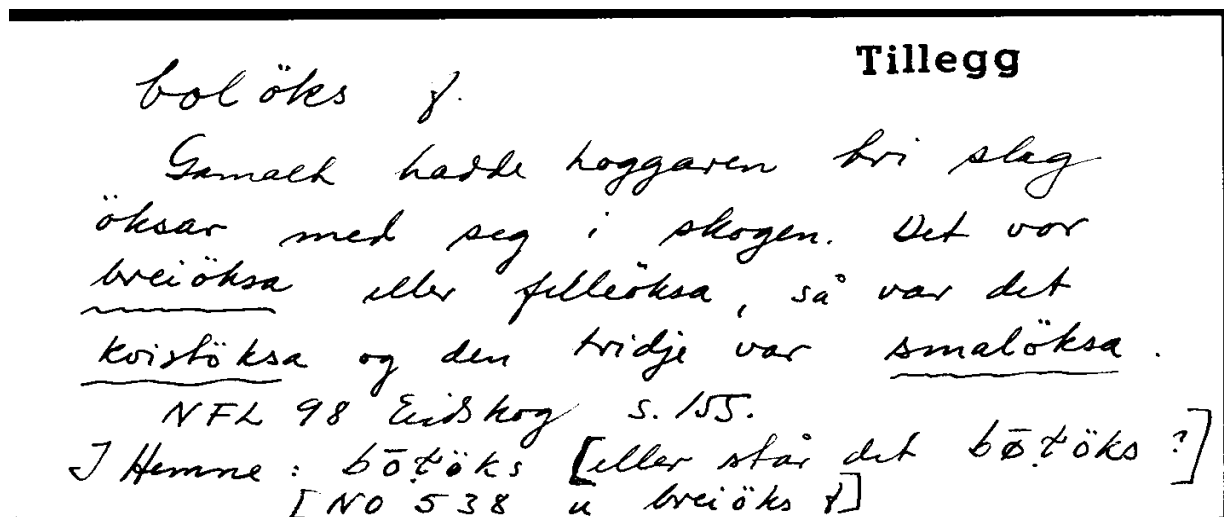 Tillegg
bolöks f.
Gamalt hadde hoggaren tri slag
öksar med seg i skogen. Det var
breiöksa eller felleöksa, så var det
kvistöksa og den tridje var smalöksa.
NFL 98 Eidskog s. 155.
I Hemne: bōṭöks [eller står det bø̄ṭöks?]
[NO 538 u breiöks f]